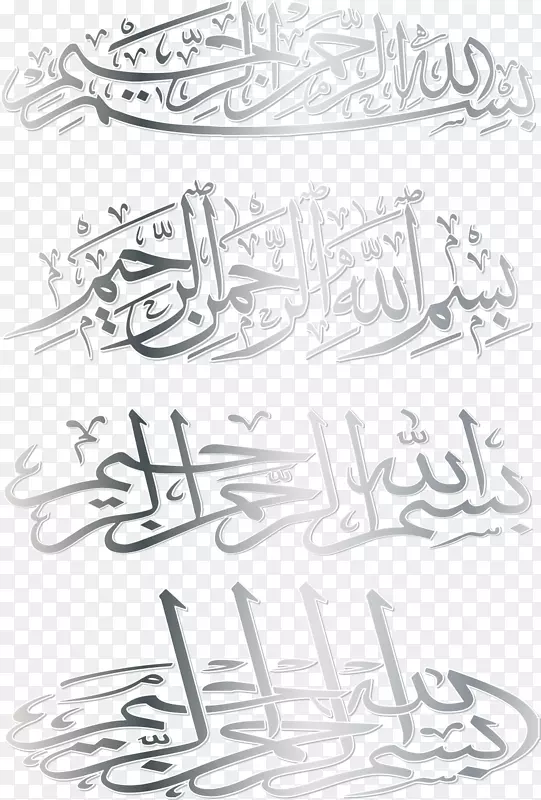 بسم الله الرحمن الرحيم
بِسْمِ اللَّهِ الرَّحْمَنِ الرَّحِيمِ
بسم الله الرحمن الرحيم
بسم الله الرحمن الرحيم